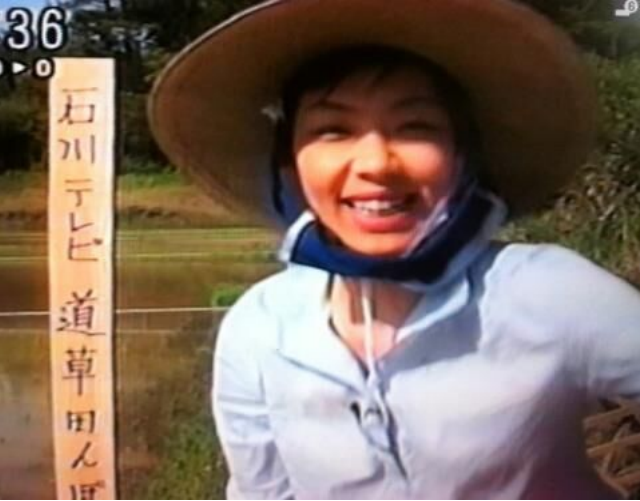 :36
石川テレビ 道草田んぼ